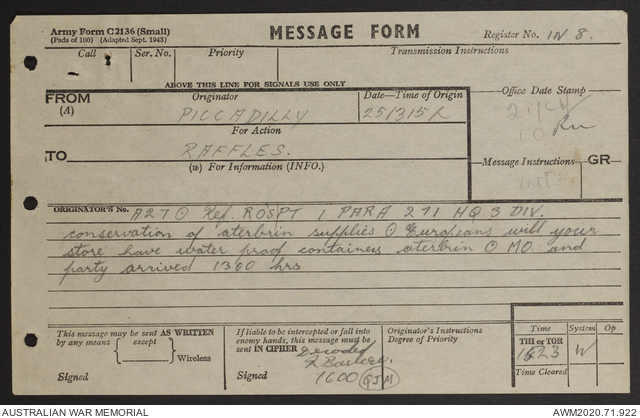 Army Form C2136 (Small)
(Pads of 100) (Adapted Sept. 1943)
MESSAGE FORM
Register No. IN 8.
Call
Ser. No.
Priority
Transmission Instructions
ABOVE THIS LINE FOR SIGNALS USE ONLY
FROM
(A)
Originator
PICCADILLY
Date—Time of Origin
251315L
Office Date Stamp
For Action
TO
RAFFLES.
(w) For Information (INFO.)
Message Instructions
GR
INT
ORIGINATOR'S No. A27 O Ref. ROSPT 1 PARA 271 HQ 3 DIV.
conservation of aterbrin supplies O Europeans will your
store have water proof containers aterbrin O MO. and
party arrived 1300 hrs
This message may be sent AS WRITTEN
by any means
except
Wireless
Signed
If liable to be intercepted or fall into
enemy hands, this message must be
sent IN CIPHER
Decoded
Signed
1600
Originator's Instructions
Degree of Priority
Time
System
Op
THI or TOR
1523
W
Time Cleared
AUSTRALIAN WAR MEMORIAL
AWM2020.71.922